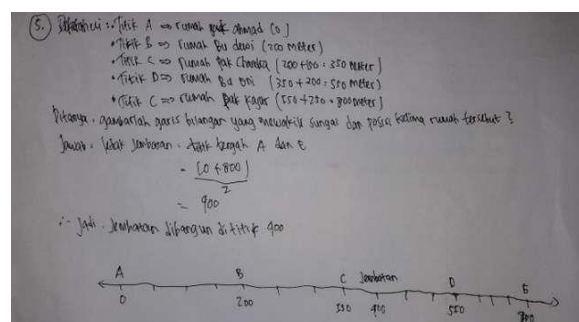 5. Diketahui : • Titik A => rumah pak ahmad (0)
• Titik B => rumah Bu dewi (200 meter)
• Titik C => rumah Pak Chandra (200+150 = 350 meter)
• Titik D => rumah Bu (350 + 200 = 550 meter)
• Titik C => rumah pak (550 + 250 = 800 meter)
Ditanya . gambarlah garis bilangan yang mewakili sungai dan posisi kelima rumah tersebut ?
Jawab . letak Jembatan . titik tengah A dan E
= (0 + 800)
2
= 400
∴ Jadi . Jembatan dibangun di titik 400
A B C Jembatan D E
0 200 350 400 550 800